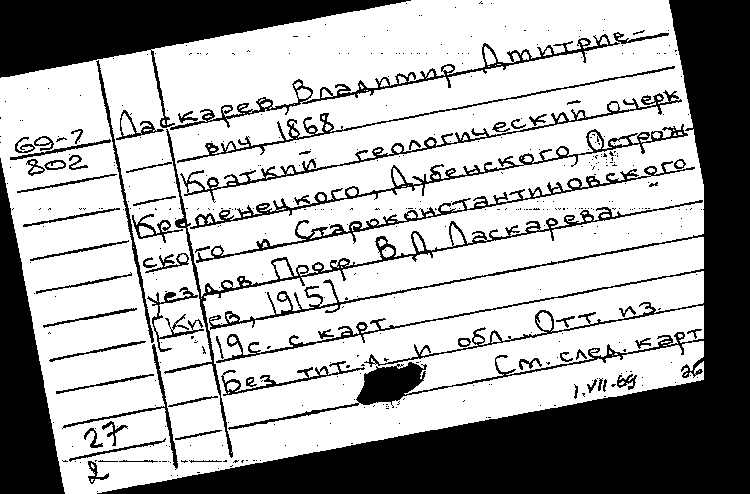 Ласкарев, Владимир Дмитрие-
вич, 1868.
69-7
802
Краткий геологический очерк
Кременецкого, Дубенского, Острож-
ского и Староконстантиновского
уездов. Проф. В.Д. Ласкарева.
[Киев, 1915].
19 с. с карт.
Без тит. л. и обл. Отт. из.
См. след. карт
1.VII-69
27
2